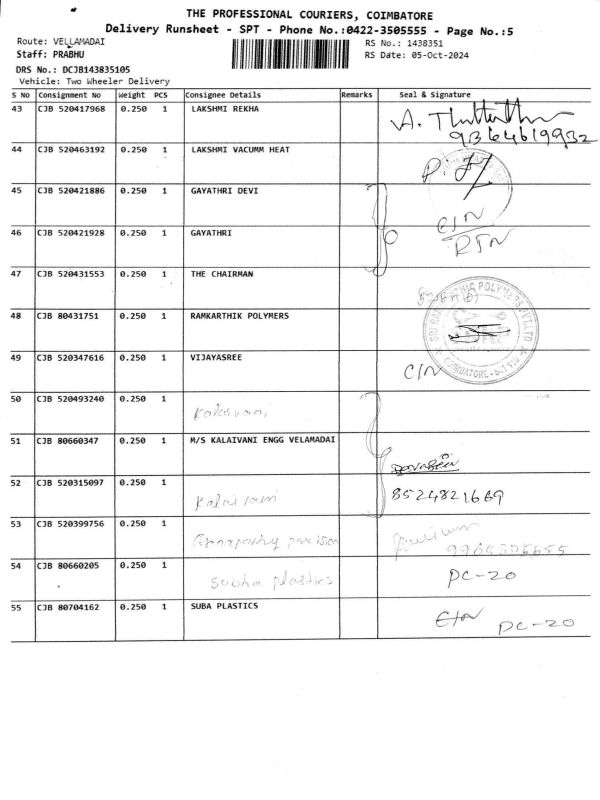 THE PROFESSIONAL COURIERS, COIMBATORE
Delivery Runsheet - SPT - Phone No.:0422-3505555 - Page No.:5
Route: VELLAMADAI
RS No.: 1438351
Staff: PRABHU
RS Date: 05-Oct-2024
DRS No.: DCJB143835105
Vehicle: Two Wheeler Delivery
S No Consignment No Weight PCS Consignee Details Remarks Seal & Signature
43 CJB 520417968 0.250 1 LAKSHMI REKHA
9364619932
44 CJB 520463192 0.250 1 LAKSHMI VACUMM HEAT
45 CJB 520421886 0.250 1 GAYATHRI DEVI
C/N
46 CJB 520421928 0.250 1 GAYATHRI
RTN
47 CJB 520431553 0.250 1 THE CHAIRMAN
48 CJB 80431751 0.250 1 RAMKARTHIK POLYMERS
49 CJB 520347616 0.250 1 VIJAYASREE C/N
50 CJB 520493240 0.250 1
Kalaivani
51 CJB 80660347 0.250 1 M/S KALAIVANI ENGG VELAMADAI
52 CJB 520315097 0.250 1
Kalaivani 8524821669
53 CJB 520399756 0.250 1
precision
54 CJB 80660205 0.250 1
Subha plastics PC-20
55 CJB 80704162 0.250 1 SUBA PLASTICS
C/N PC-20